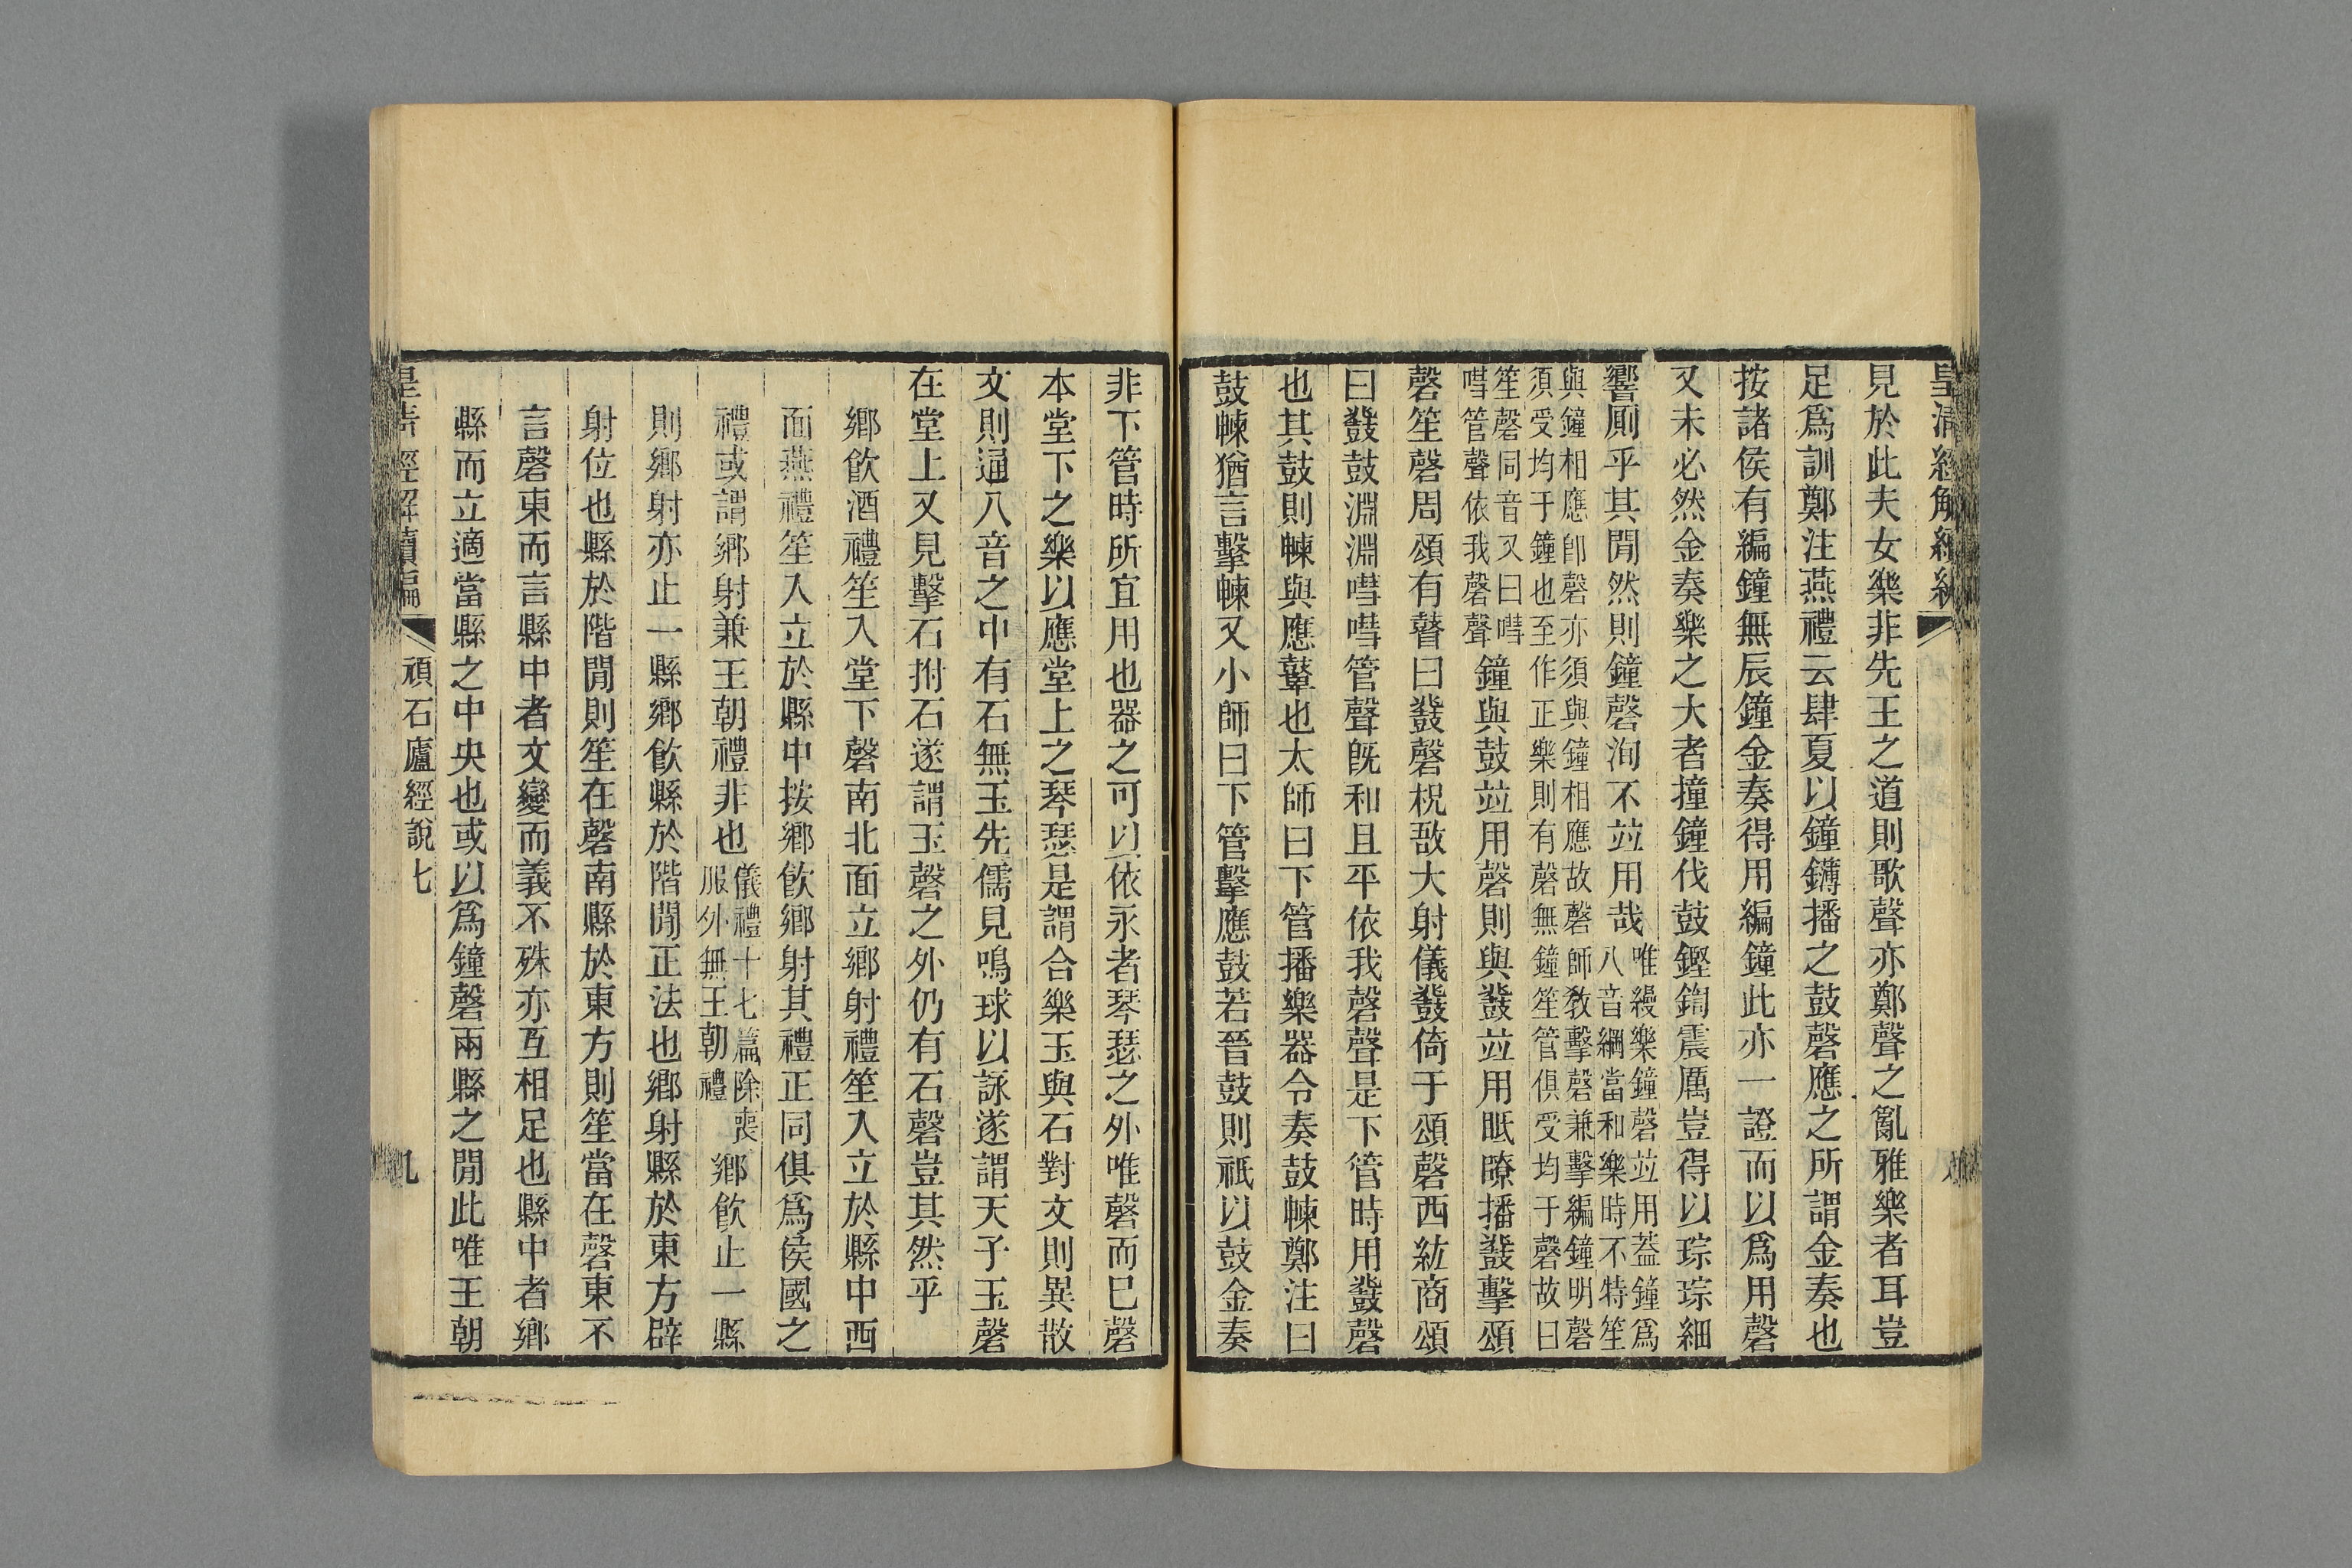 皇清經解續編
見於此夫女樂非先王之道則歌聲亦鄭聲之亂雅樂者耳豈
足爲訓鄭注燕禮云肆夏以鐘鑮播之鼓磬應之所謂金奏也
按諸侯有編鐘無辰鐘金奏得用編鐘此亦一證而以爲用磬
又未必然金奏樂之大者撞鐘伐鼓鏗鍧震厲豈得以琮琮細
響厠乎其閒然則鐘磬洵不竝用哉
唯縵樂鐘磬竝用葢鐘爲
八音綱當和樂時不特笙
與鐘相應卽磬亦須與鐘相應故磬師敎擊磬兼擊編鐘明磬
須受均于鐘也至作正樂則有磬無鐘笙管俱受均于磬故曰
笙磬同音又曰嘒
嘒管聲依我磬聲
鐘與鼓竝用磬則與鼗竝用眡瞭播鼗擊頌
磬笙磬周頌有瞽曰鼗磬柷敔大射儀鼗倚于頌磬西紘商頌
曰鼗鼓淵淵嘒嘒管聲旣和且平依我磬聲是下管時用鼗磬
也其鼓則朄與應鼙也太師曰下管播樂器令奏鼓朄鄭注曰
鼓朄猶言擊朄又小師曰下管擊應鼓若晉鼓則祇以鼓金奏
非下管時所宜用也器之可以依永者琴瑟之外唯磬而已磬
本堂下之樂以應堂上之琴瑟是謂合樂玉與石對文則異散
文則通八音之中有石無玉先儒見鳴球以詠遂謂天子玉磬
在堂上又見擊石拊石遂謂玉磬之外仍有石磬豈其然乎
鄉飮酒禮笙入堂下磬南北面立鄉射禮笙入立於縣中西
面燕禮笙入立於縣中按鄉飮鄉射其禮正同俱爲侯國之
禮或謂鄉射兼王朝禮非也
儀禮十七篇除喪
服外無王朝禮
鄉飮止一縣
則鄉射亦止一縣鄉飮縣於階閒正法也鄉射縣於東方辟
射位也縣於階閒則笙在磬南縣於東方則笙當在磬東不
言磬東而言縣中者文變而義不殊亦互相足也縣中者鄉
縣而立適當縣之中央也或以爲鐘磬兩縣之閒此唯王朝
皇清經解續編 頑石廬經說七 九